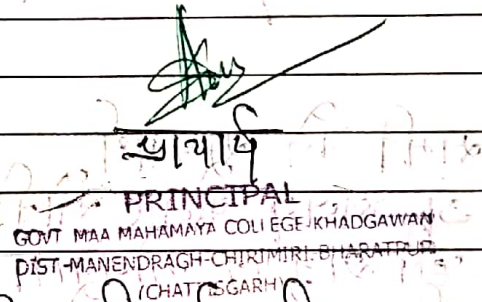 प्राचार्य
PRINCIPAL
GOVT MAA MAHAMAYA COLLEGE KHADGAWAN
DIST,-MANENDRAGH-CHIRIMIRI-BHARATPUR
(CHATTISGARH)